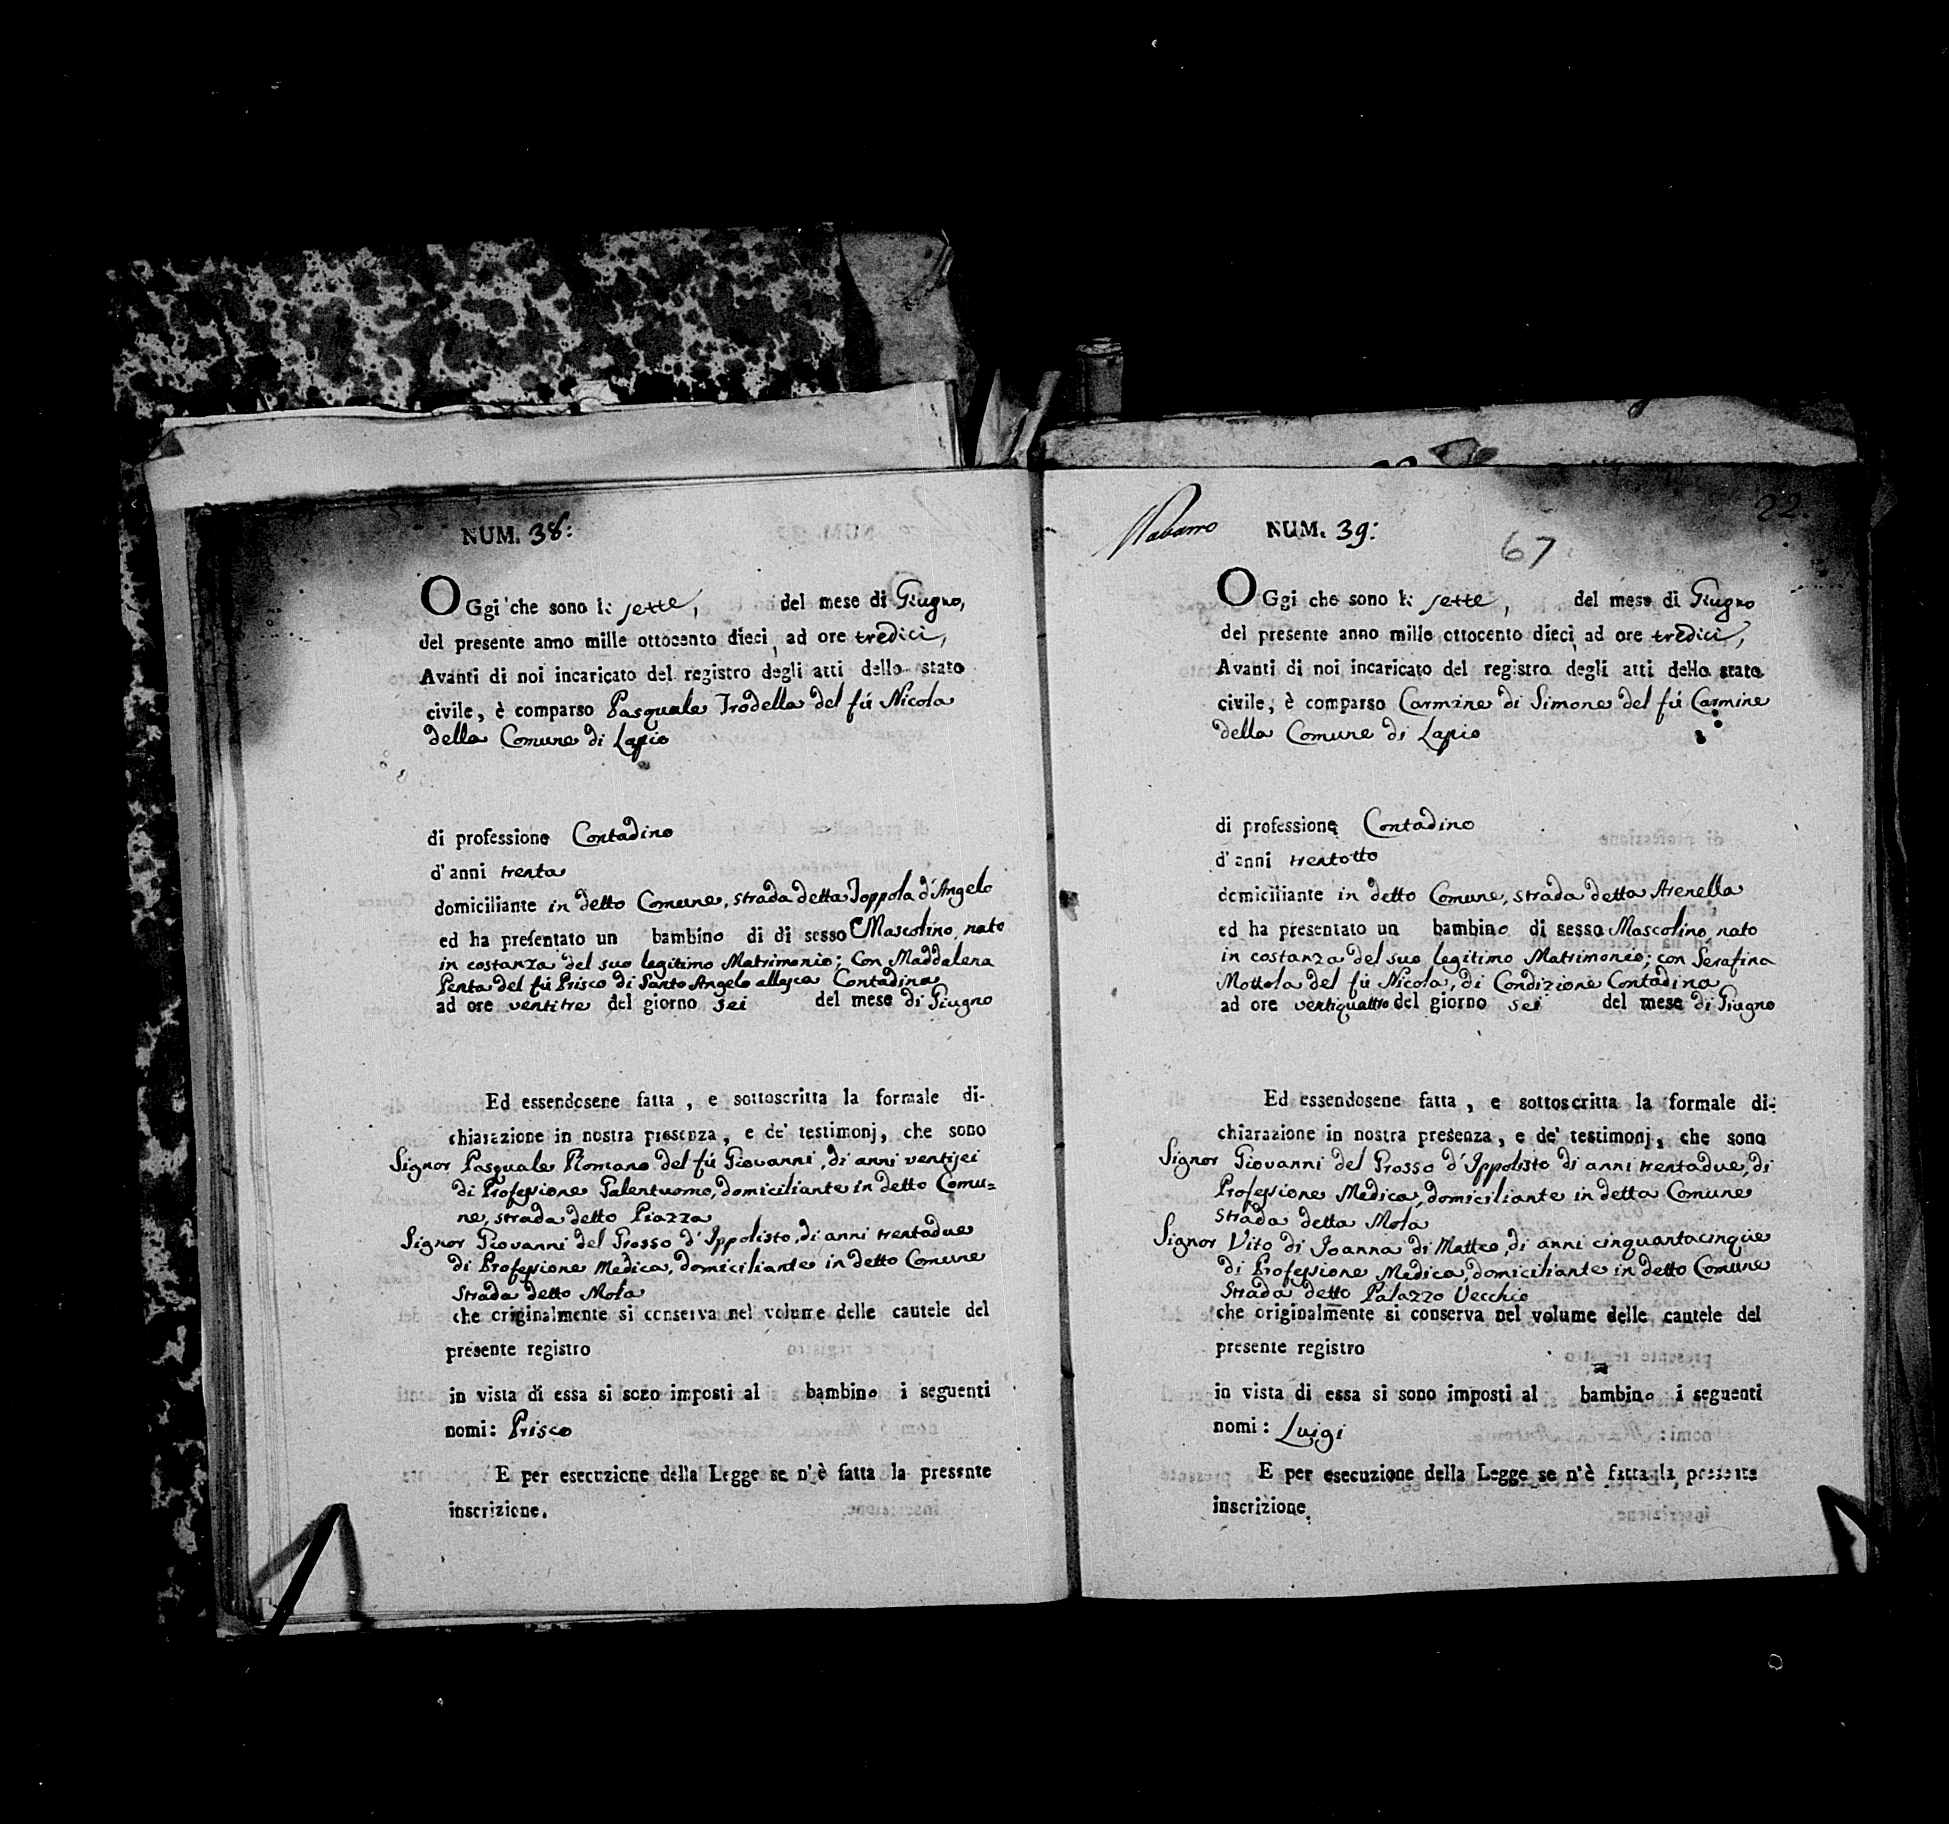 NUM. 38:
OGgi che sono li sette, del mese di Giugno,
del presente anno mille ottocento dieci, ad ore tredici,
Avanti di noi incaricato del registro degli atti dello stato
civile, è comparso Pasquale Trodella del fù Nicola
della Comune di Lapio
di professione Contadino
d'anni trenta
domiciliante in detto Comune, strada detta Toppola d'Angelo
ed ha presentato un bambino di di sesso Mascolino nato
in costanza del suo legitimo Matrimonio; con Maddalena
Penta del fù Prisco di Santo Angelo allesca Contadina
ad ore ventitre del giorno sei del mese di Giugno
Ed essendosene fatta, e sottoscritta la formale di-
chiarazione in nostra presenza, e de' testimonj, che sono
Signor Pasquale Romano del fù Giovanni, di anni ventisei
di Professione Galentuomo, domiciliante in detto Comu=
ne, strada detto Piazza
Signor Giovanni del Grosso d'Ippolisto, di anni trentadue
di Professione Medica, domiciliante in detto Comune
Strada detto Mola
che originalmente si conserva nel volume delle cautele del
presente registro
in vista di essa si sono imposti al bambino i seguenti
nomi: Prisco
E per esecuzione della Legge se n'è fatta la presente
inscrizione.
NUM. 39:
22
67
OGgi che sono li sette, del mese di Giugno
del presente anno mille ottocento dieci, ad ore tredici,
Avanti di noi incaricato del registro degli atti dello stato
civile, è comparso Carmine di Simone del fù Carmine
della Comune di Lapio
di professione Contadino
d'anni trentotto
domiciliante in detto Comune, strada detta Arenella
ed ha presentato un bambino di sesso Mascolino nato
in costanza del suo legitimo Matrimonio; con Serafina
Mottola del fù Nicola, di Condizione Contadina
ad ore ventiquattro del giorno sei del mese di Giugno
Ed essendosene fatta, e sottoscritta la formale di-
chiarazione in nostra presenza, e de' testimonj, che sono
Signor Giovanni del Grosso d'Ippolisto di anni trentadue, di
Professione Medica, domiciliante in detta Comune
Strada detta Mola
Signor Vito di Joanna di Matteo, di anni cinquantacinque
di Professione Medica, domiciliante in detto Comune
Strada detto Palazzo Vecchio
che originalmente si conserva nel volume delle cautele del
presente registro
in vista di essa si sono imposti al bambino i seguenti
nomi: Luigi
E per esecuzione della Legge se n'è fatta la presente
inscrizione.